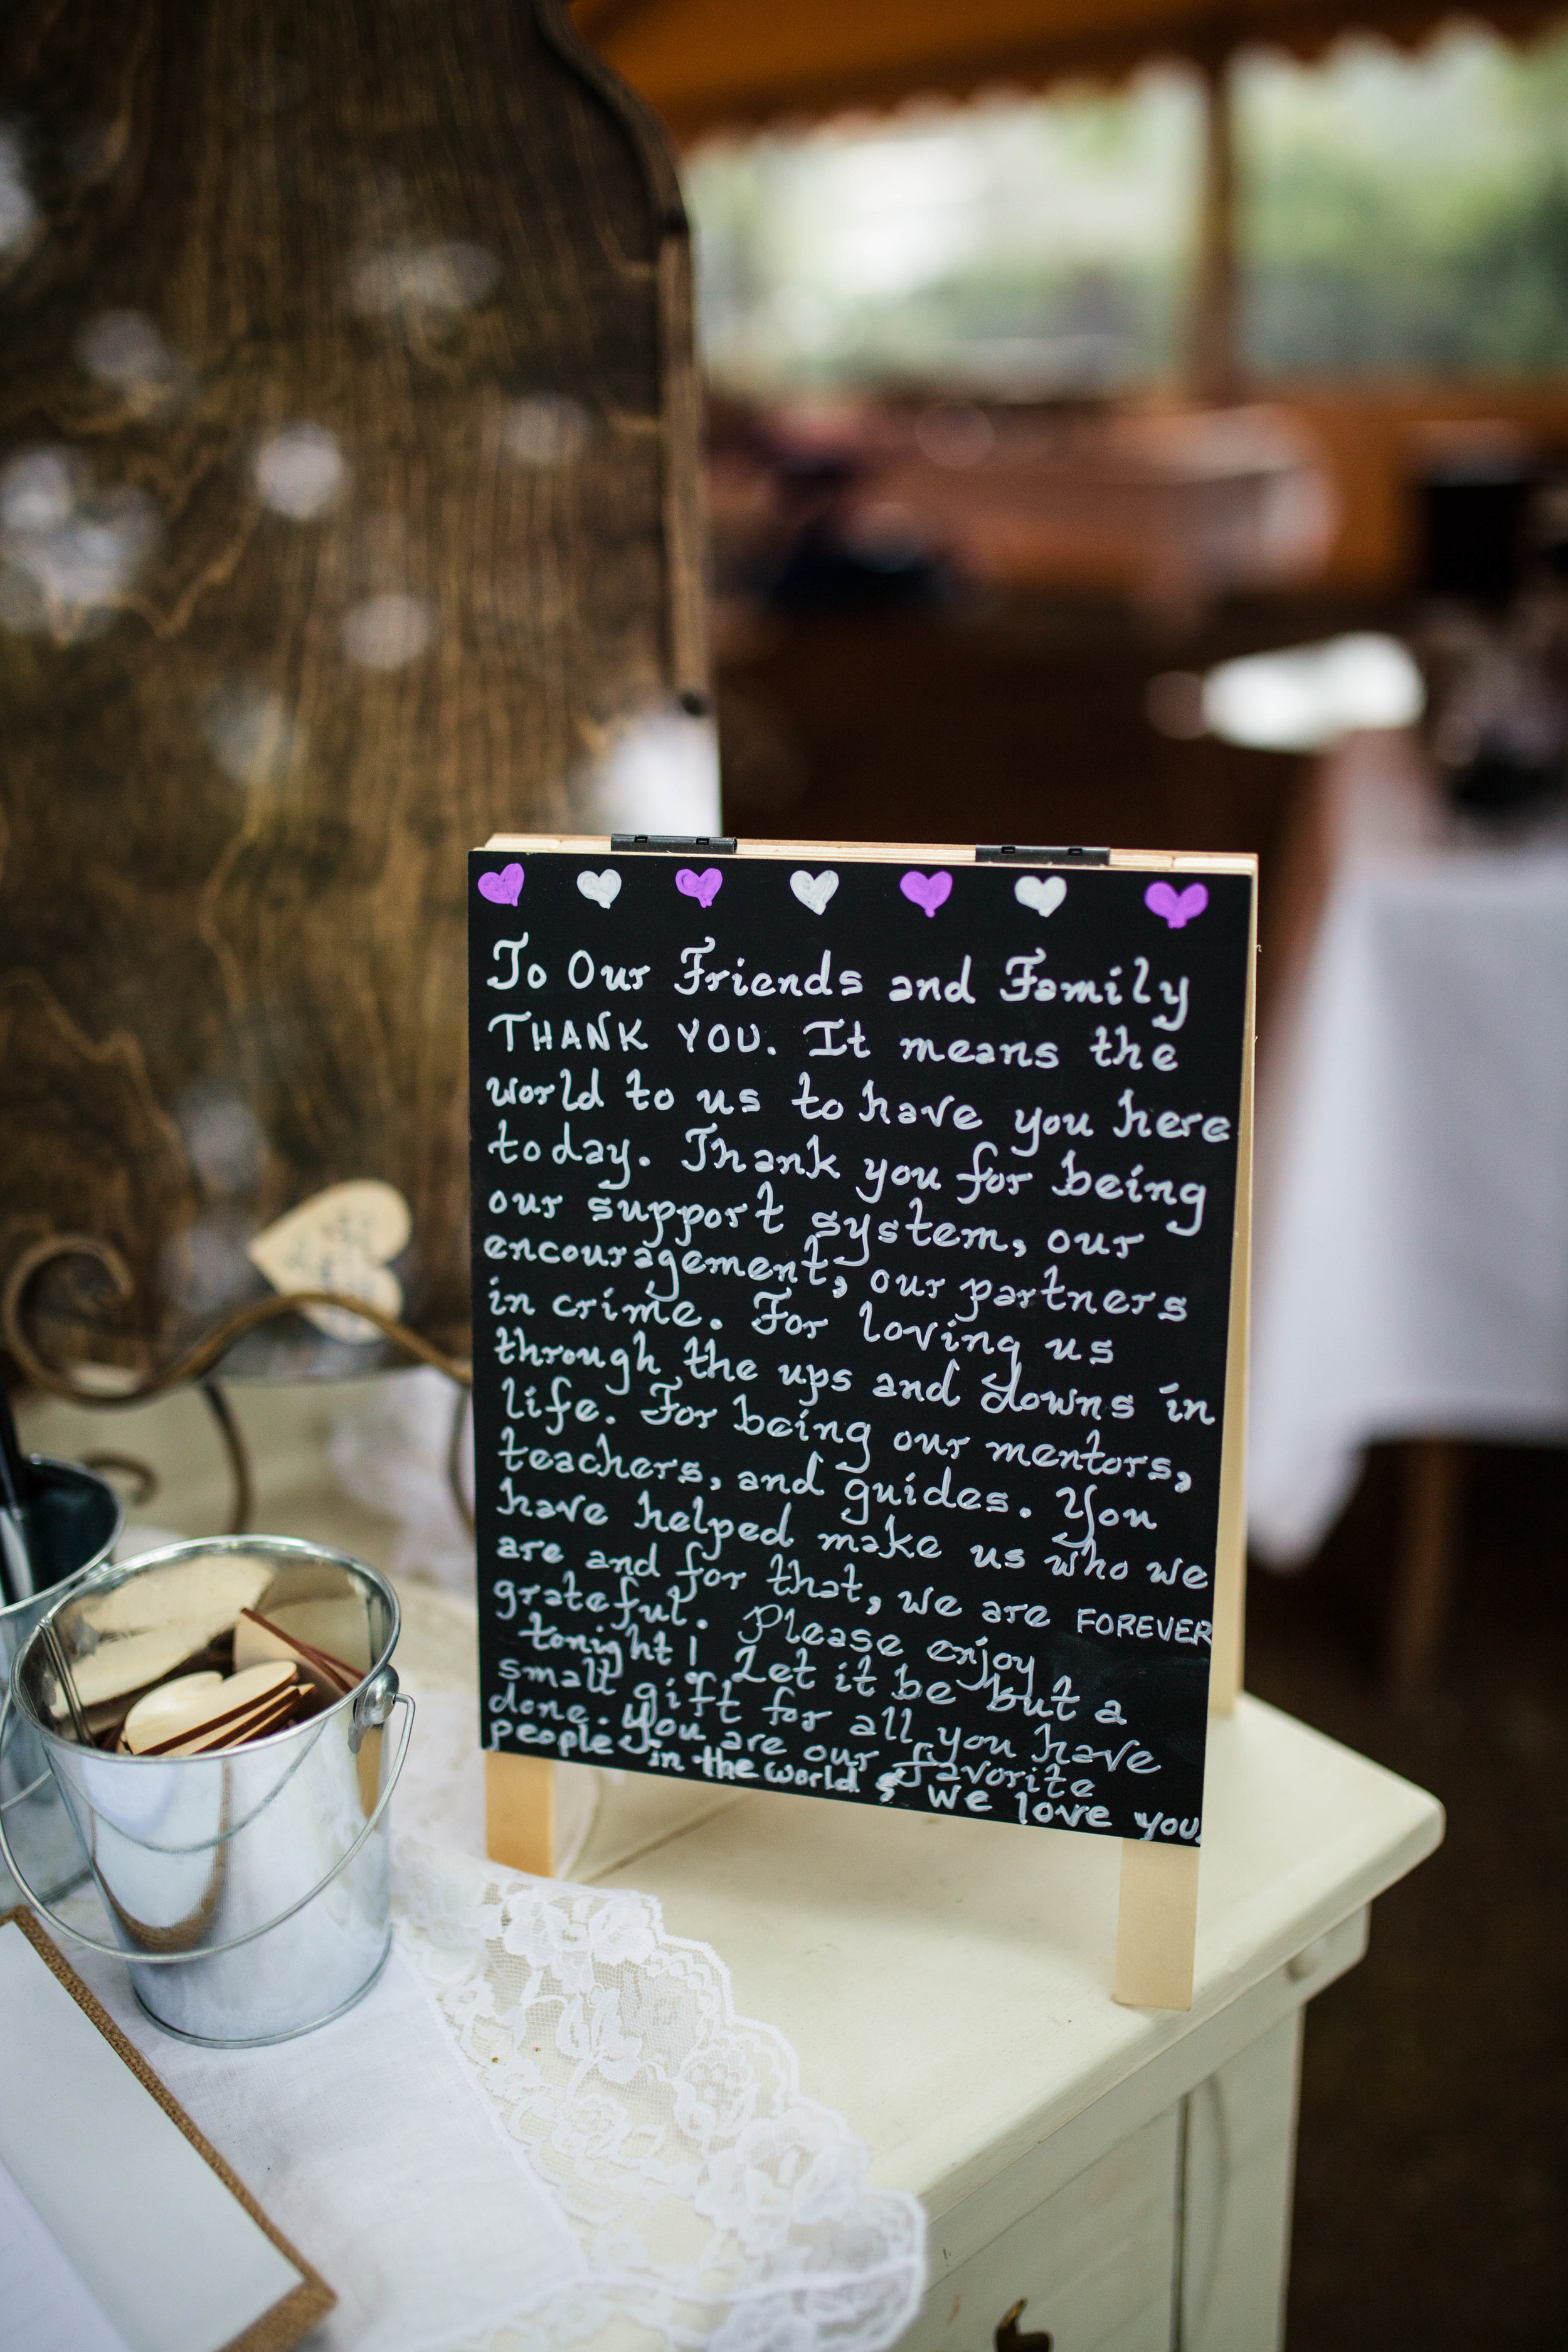 To Our Friends and Family
THANK YOU. It means the
world to us to have you here
today. Thank you for being
our support system, our
encouragement, our partners
in crime. For loving us
through the ups and downs in
life. For being our mentors,
teachers, and guides. You
have helped make us who we
are and for that, we are FOREVER
grateful. Please enjoy
tonight! Let it be but a
small gift for all you have
done. You are our favorite
people in the world & we love you